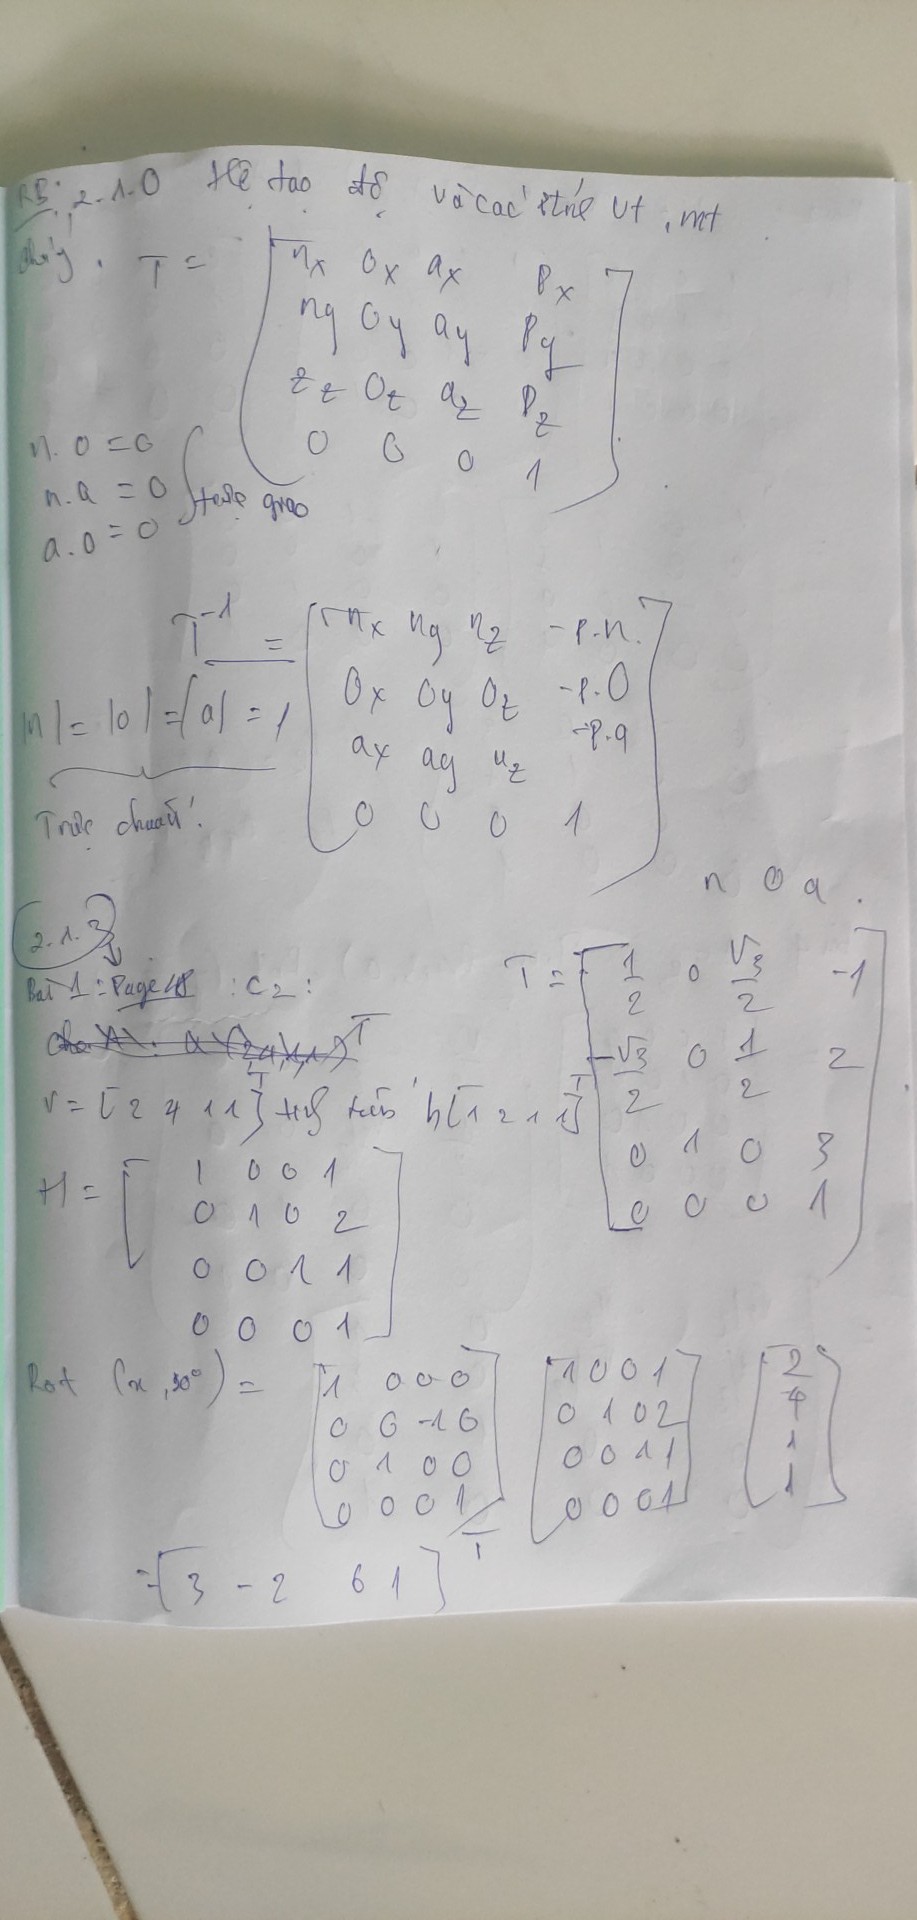 RB: 2-1.0 Hệ tọa độ và các tính vt, mt
Chú ý. T = [nx ox ax Px
ny oy ay Py
zz oz az Pz
0 0 0 1]
n. o = 0
n.a = 0
a.o = 0
trực giao
T⁻¹ = [nx ny nz -p.n.
ox oy oz -p.o
ax ay az -p.a
0 0 0 1]
|n| = |o| = |a| = 1
Trực chuẩn.
n o a .
2.1.3
Bài 1: Page 48 : C2 :
T = [1/2 0 √3/2 -1
-√3/2 0 1/2 2
0 1 0 3
0 0 0 1]
v = [2 4 1 1]T h[1 2 1 1]T
H = [1 0 0 1
0 1 0 2
0 0 1 1
0 0 0 1]
Rot (x, 90°) = [1 0 0 0 [1 0 0 1 [2
0 0 -1 0 0 1 0 2 4
0 1 0 0 0 0 1 1 1
0 0 0 1] 0 0 0 1] 1]
= [3 -2 6 1]T